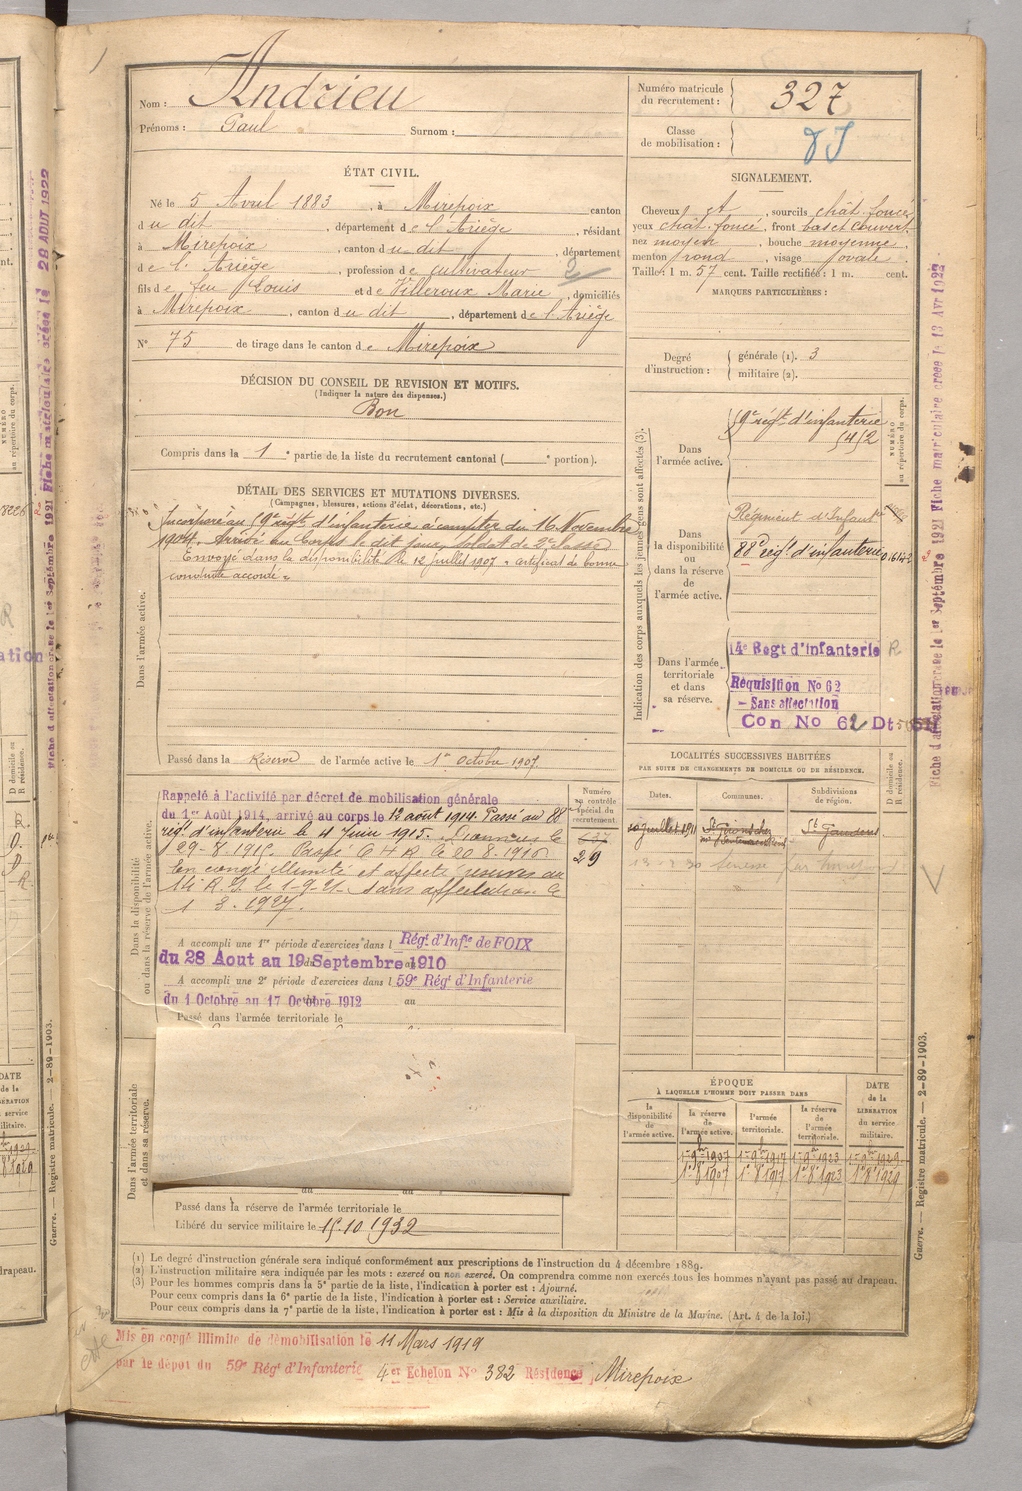 Nom : Andrieu
Prénoms : Paul Surnom :
Numéro matricule du recrutement : 327
Classe de mobilisation :
ÉTAT CIVIL.
Né le 5 Avril 1883, à Mirepoix canton
du dit, département de l'Ariège, résidant
à Mirepoix, canton du dit, département
de l'Ariège, profession de cultivateur 2
fils de feu Louis et de Villeroux Marie, domiciliés
à Mirepoix, canton du dit, département de l'Ariège
N° 75 de tirage dans le canton de Mirepoix
SIGNALEMENT.
Cheveux et, sourcils chât. foncé
yeux chât. foncé, front bas et couvert
nez moyen, bouche moyenne,
menton rond, visage ovale.
Taille : 1 m. 57 cent. Taille rectifiée : 1 m. cent.
MARQUES PARTICULIÈRES :
Degré d'instruction : générale (1). 3
militaire (2).
DÉCISION DU CONSEIL DE REVISION ET MOTIFS.
(Indiquer la nature des dispenses.)
Bon
Compris dans la 1e partie de la liste du recrutement cantonal ( e portion).
DÉTAIL DES SERVICES ET MUTATIONS DIVERSES.
(Campagnes, blessures, actions d'éclat, décorations, etc.)
Dans l'armée active.
Incorporé au 59e régt d'infanterie à compter du 16 Novembre
1904. Arrivé au Corps le dit jour, soldat de 2e classe
Envoyé dans la disponibilité le 12 juillet 1907 certificat de bonne
conduite accordé
Passé dans la Réserve de l'armée active le 1er Octobre 1907
Indication des corps auxquels les jeunes gens sont affectés (3).
NUMÉRO au répertoire du corps.
Dans l'armée active.
59e régt d'infanterie
Dans la disponibilité ou dans la réserve de l'armée active.
Régiment d'Infant
88e régt d'infanterie
Dans l'armée territoriale et dans sa réserve.
14e Regt d'infanterie R
Requisition No 62
- Sans affectation
Con No 62 Dt
Fiche d'affectation crase le 1er Septembre 1921 Fiche matriculaire creee le 13 Avr 1922
LOCALITÉS SUCCESSIVES HABITÉES
PAR SUITE DE CHANGEMENTS DE DOMICILE OU DE RÉSIDENCE.
Dates. Communes. Subdivisions de région. D domicile ou R résidence.
10 juillet 1911 St Gaudens
Dans la disponibilité ou dans la réserve de l'armée active.
Numéro au contrôle spécial du recrutement.
29
Rappelé à l'activité par décret de mobilisation générale
du 1er Août 1914, arrivé au corps le 12 août 1914. Passé au 88
régt d'infanterie le 4 Juin 1915.
29-8-1915. Passé
En congé illimité et affecté réserves au
14 R.I. le 1-9-21. Sans affectation le
1 3. 1927.
A accompli une 1re période d'exercices dans l Régt d'Infie de FOIX
du 28 Aout au 19 Septembre 1910
A accompli une 2e période d'exercices dans l 59e Régt d'Infanterie
du 1 Octobre au 17 Octobre 1912 au
Passé dans l'armée territoriale le
Dans l'armée territoriale et dans sa réserve.
Passé dans la réserve de l'armée territoriale le
Libéré du service militaire le 15.10 1932
ÉPOQUE
À LAQUELLE L'HOMME DOIT PASSER DANS
la disponibilité de l'armée active. la réserve de l'armée active. l'armée territoriale. la réserve de l'armée territoriale. DATE de la LIBÉRATION du service militaire.
1er 8 1907 1er 8 1917 1er 8 1923 1er 8 1929
Guerre. — Registre matricule. 2-89-1903.
(1) Le degré d'instruction générale sera indiqué conformément aux prescriptions de l'instruction du 4 décembre 1889.
(2) L'instruction militaire sera indiquée par les mots : exercé ou non exercé. On comprendra comme non exercés tous les hommes n'ayant pas passé au drapeau.
(3) Pour les hommes compris dans la 5e partie de la liste, l'indication à porter est : Ajourné.
Pour ceux compris dans la 6e partie de la liste, l'indication à porter est : Service auxiliaire.
Pour ceux compris dans la 7e partie de la liste, l'indication à porter est : Mis à la disposition du Ministre de la Marine. (Art. 4 de la loi.)
Mis en congé illimité de démobilisation le 11 Mars 1919
par le dépot du 59e Rég d'Infanterie 4er Échelon No 382 Résidence Mirepoix